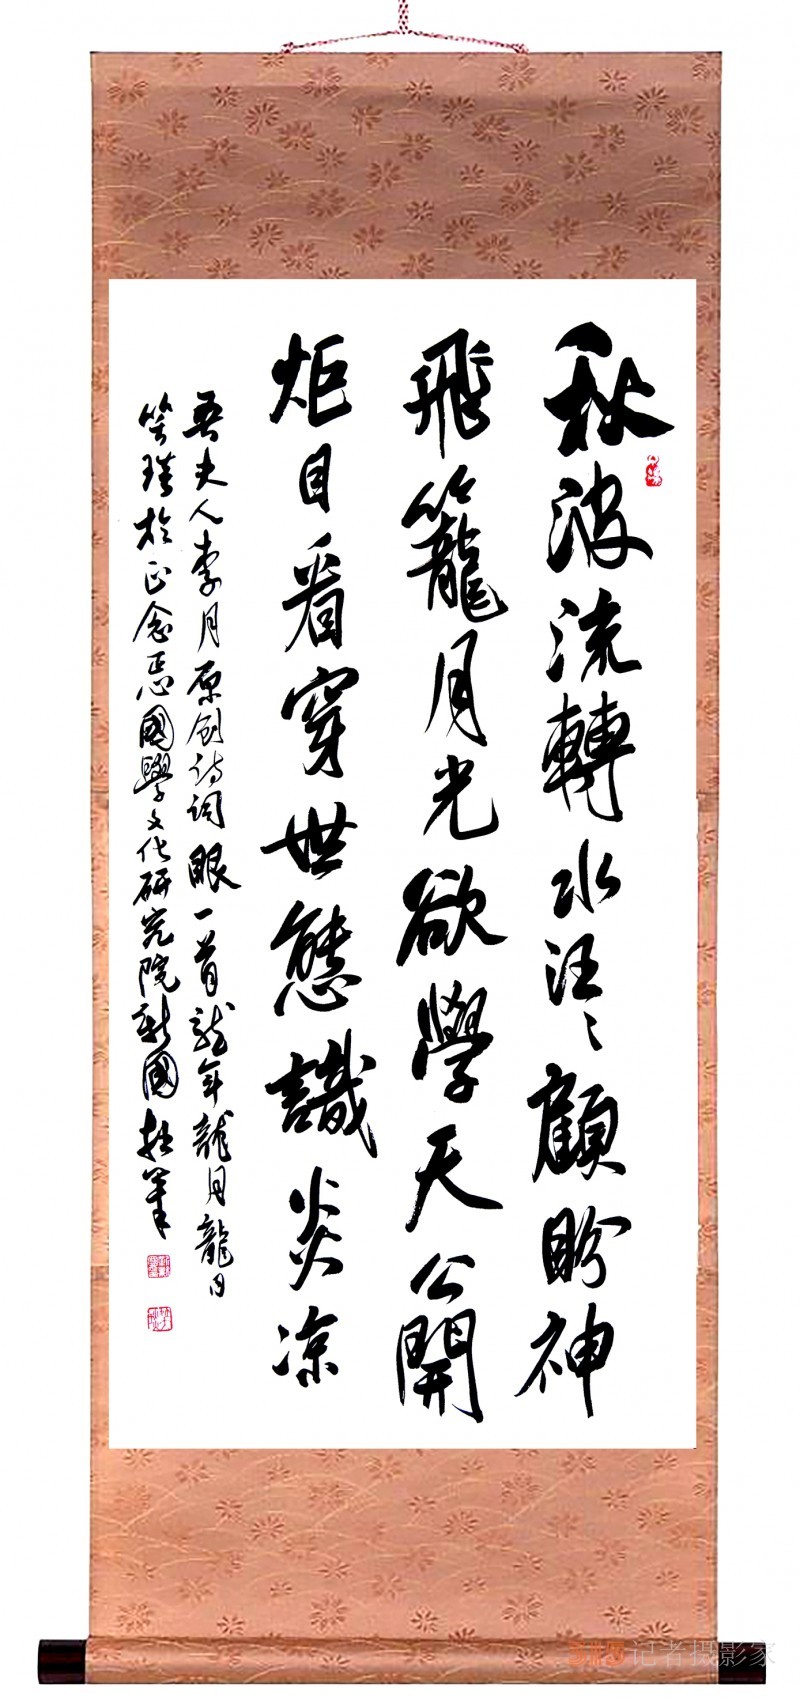 秋波流轉水汪々顧盼神
飛籠月光欲學天公開
炬目看穿世態識炎凉
吾夫人李月原创诗词眼一首龍年龍月龍日
於正念國學文化研究院國拙筆
315记者摄影家